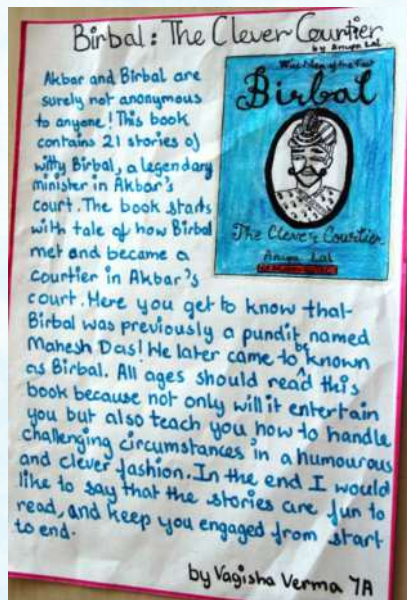 Birbal: The Clever Courtier
by Anupa Lal
Akbar and Birbal are
surely not anonymous
to anyone! This book
contains 21 stories of
witty Birbal, a legendary
minister in Akbar's
court. The book starts
with tale of how Birbal
met and became a
courtier in Akbar's
court. Here you get to know that
Birbal was previously a pundit, named
Mahesh Das! He later came to be known
as Birbal. All ages should read this
book because not only will it entertain
you but also teach you how to handle
challenging circumstances in a humourous
and clever fashion. In the end I would
like to say that the stories are fun to
read, and keep you engaged from start
to end.
by Vagisha Verma 7A
Wise Men of the East
Birbal
The Clever Courtier
Anupa Lal